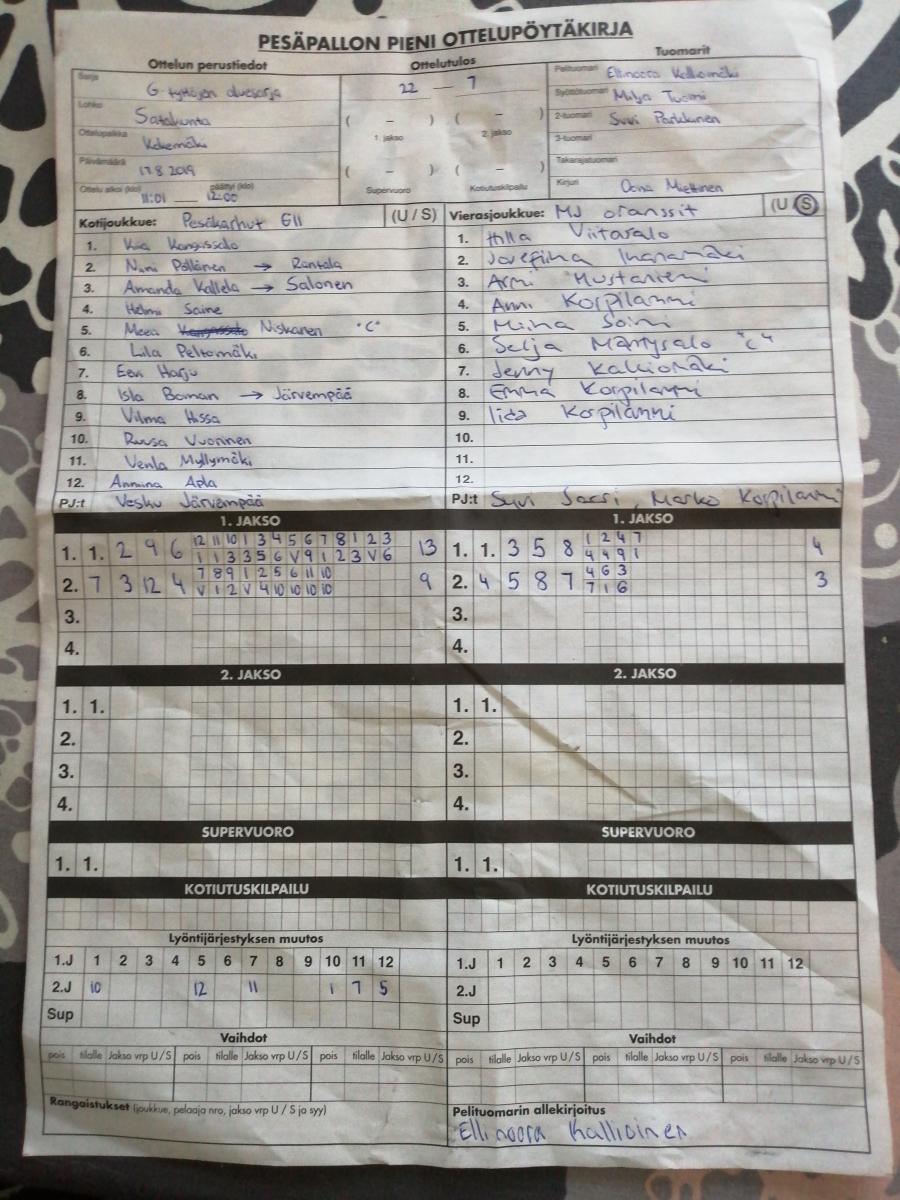 PESÄPALLON PIENI OTTELUPÖYTÄKIRJA
Ottelun perustiedot
Ottelutulos
Tuomarit
Sarja G-tyttöjen aluesarja
22 — 7
Pelituomari Ellinoora
Lohko Satakunta
( – ) ( – )
Syöttötuomari Milja Tuomi
1. jakso 2. jakso
2-tuomari Suvi Parkkunen
Ottelupaikka Kokemäki
3-tuomari
Päivämäärä 17.8.2019
( – ) ( – )
Takarajatuomari
Ottelu alkoi (klo) 11:01 — päättyi (klo) 12:00
Supervuoro Kotiutuskilpailu
Kirjuri Oona Miettinen
Kotijoukkue: Pesäkarhut E11 (U / S)
1. Kiia
2. Nini Pöllänen → Rantala
3. Amanda Kallela → Salonen
4. Helmi Saine
5. Meea Niskanen "C"
6. Lila Peltomäki
7. Eevi Harju
8. Isla Boman → Järvempää
9. Vilma Hissa
10. Ruusa Vuorinen
11. Venla Myllymäki
12. Anniina Apla
PJ:t Vesku Järvempää
Vierasjoukkue: MJ oranssit (U / S)
1. Hilla Viitasalo
2. Josefiina
3. Armi Mustaniemi
4. Anni Korpilammi
5. Miina Soini
6. Selja Mäntysalo "C"
7. Jenny Kalliomäki
8. Emma Korpilammi
9. Iida Korpilammi
10.
11.
12.
PJ:t Suvi Saari, Marko Korpilammi
1. JAKSO
12 11 10 1 3 4 5 6 7 8 1 2 3
1. 1. 2 9 6 13
1 1 3 3 5 6 V 9 1 2 3 V 6
7 8 9 1 2 5 6 11 10
2. 7 3 12 4 9
V 1 2 V 4 10 10 10 10
3.
4.
1. JAKSO
1 2 4 7
1. 1. 3 5 8 4
4 4 9 1
4 6 3
2. 4 5 8 7 3
7 1 6
3.
4.
2. JAKSO
1. 1.
2.
3.
4.
2. JAKSO
1. 1.
2.
3.
4.
SUPERVUORO
1. 1.
SUPERVUORO
1. 1.
KOTIUTUSKILPAILU
KOTIUTUSKILPAILU
Lyöntijärjestyksen muutos
1.J 1 2 3 4 5 6 7 8 9 10 11 12
2.J 10 12 11 1 7 5
Sup
Lyöntijärjestyksen muutos
1.J 1 2 3 4 5 6 7 8 9 10 11 12
2.J
Sup
Vaihdot
pois tilalle Jakso vrp U/S pois tilalle Jakso vrp U/S pois tilalle Jakso vrp U/S
Vaihdot
pois tilalle Jakso vrp U/S pois tilalle Jakso vrp U/S pois tilalle Jakso vrp U/S
Rangaistukset (joukkue, pelaaja nro, jakso vrp U / S ja syy)
Pelituomarin allekirjoitus
Ellinoora Kallioinen